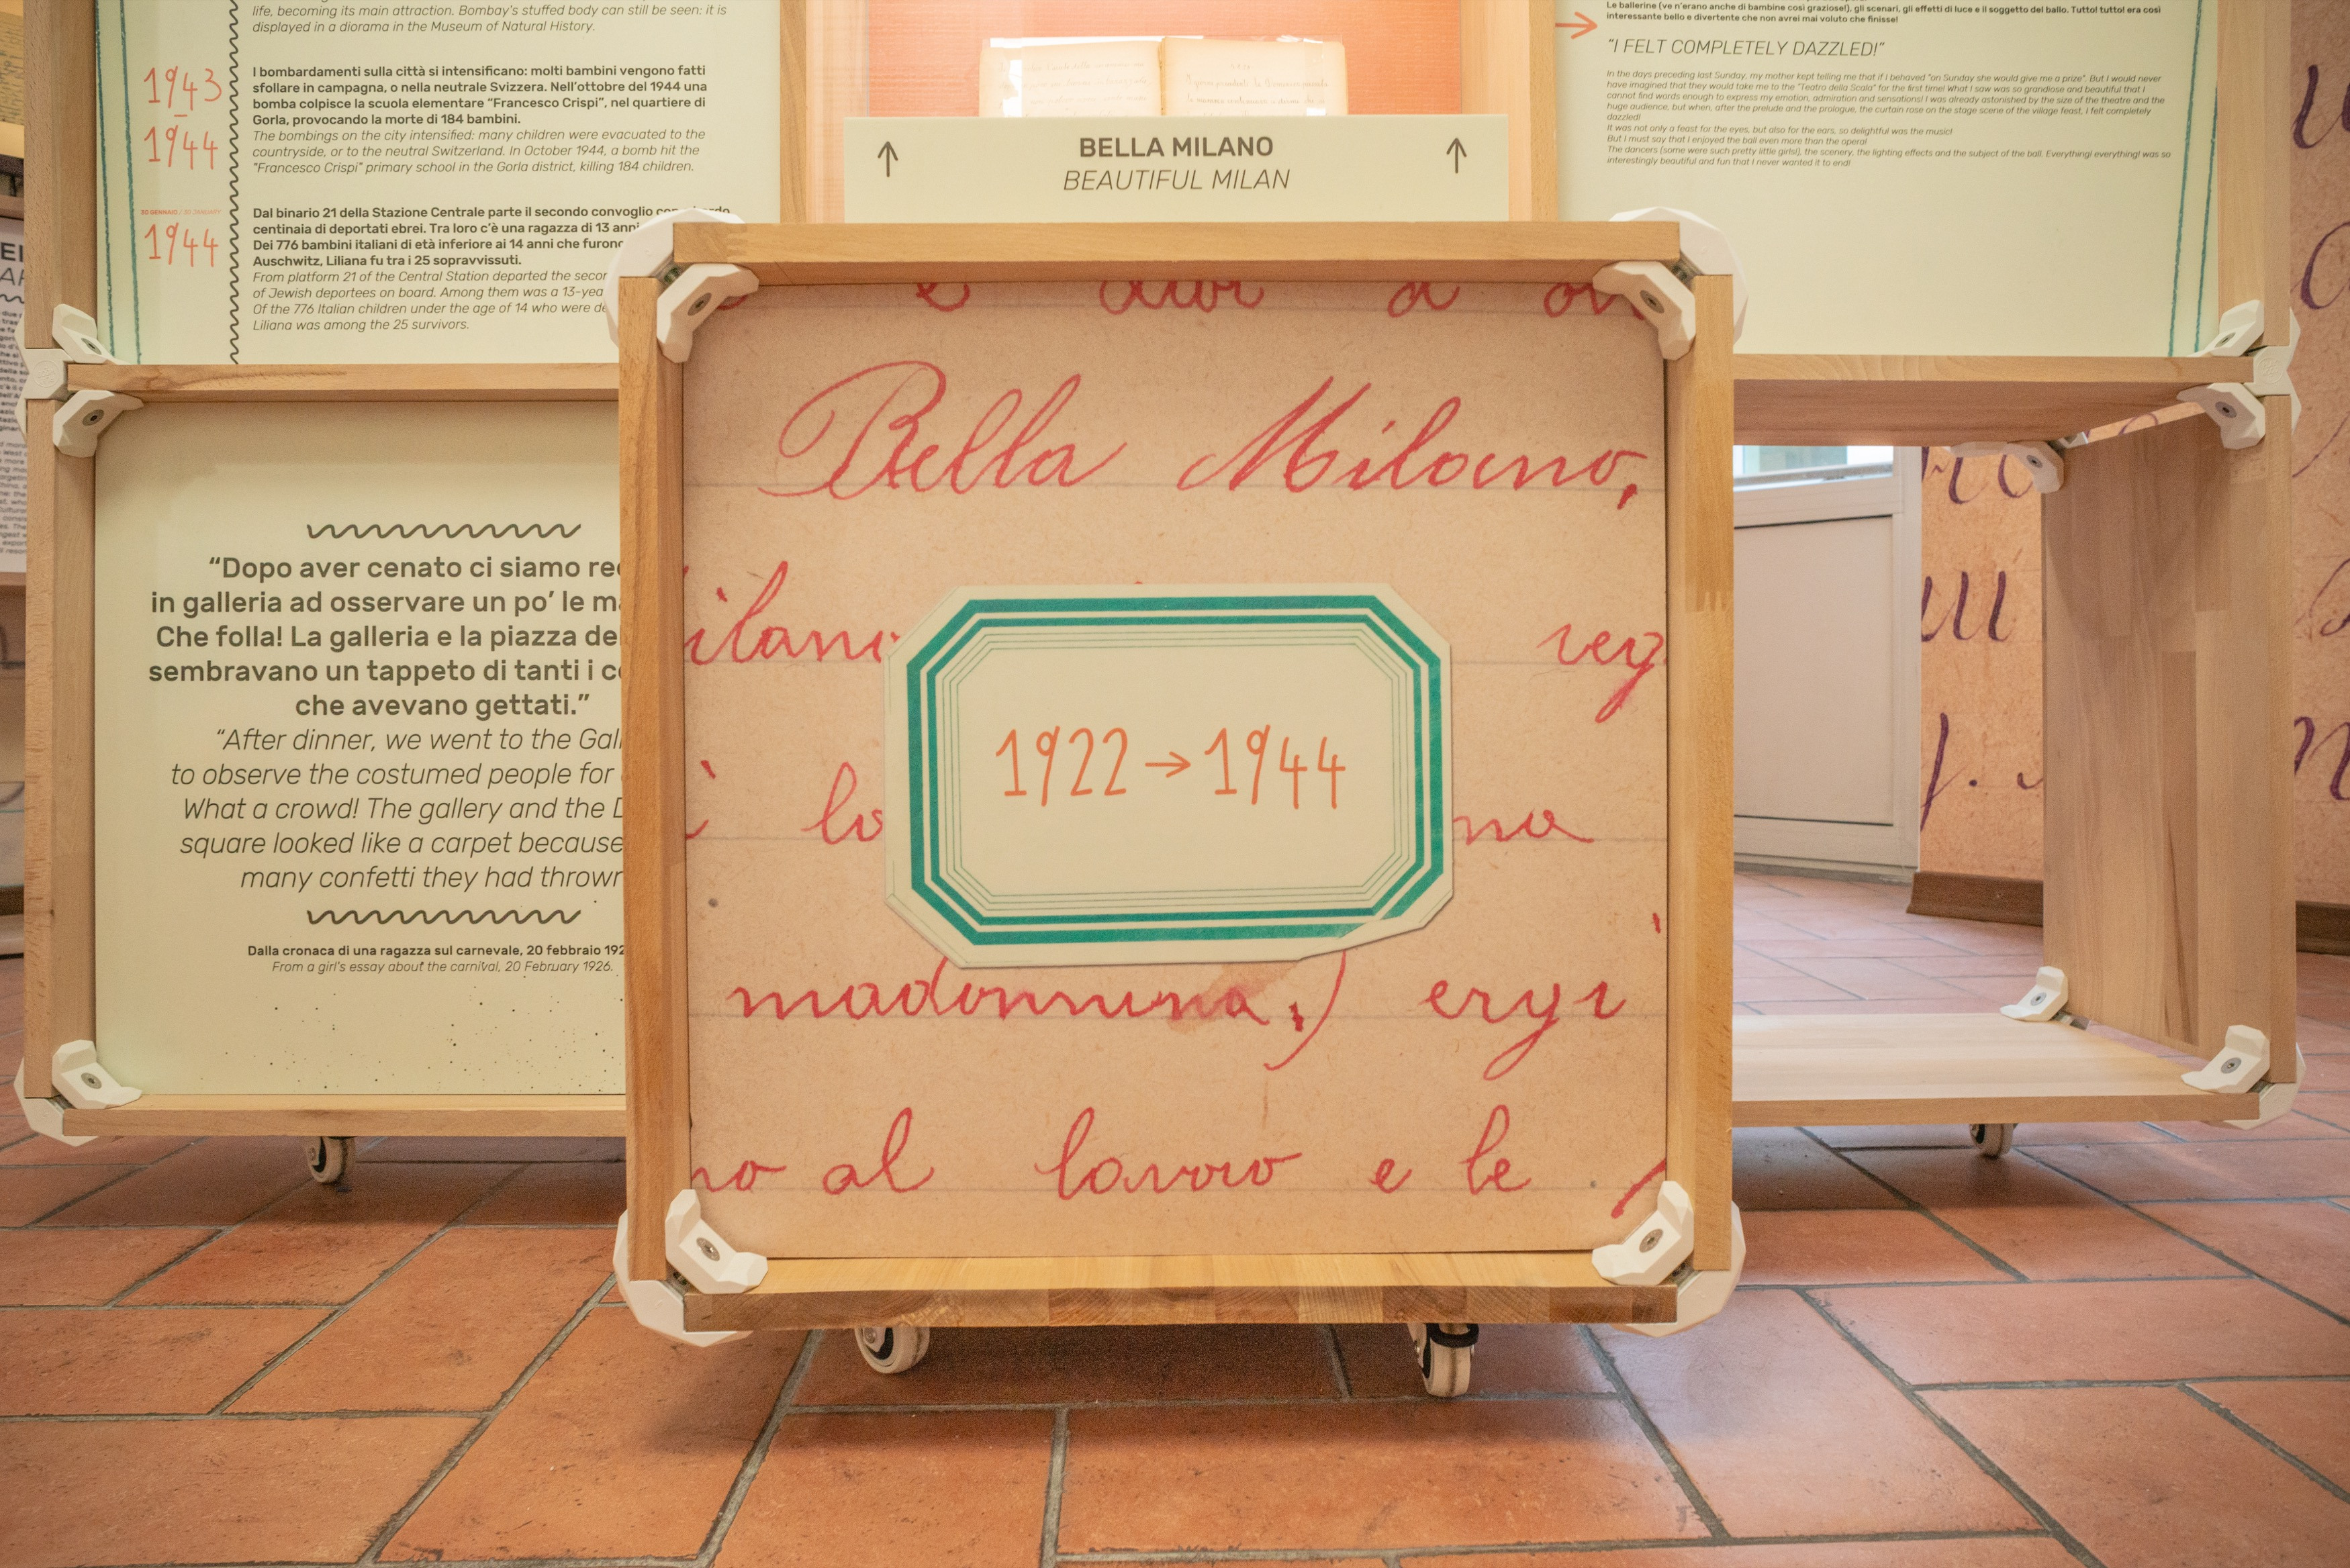 life, becoming its main attraction. Bombay's stuffed body can still be seen: it is
displayed in a diorama in the Museum of Natural History.
1943
–
1944
I bombardamenti sulla città si intensificano: molti bambini vengono fatti
sfollare in campagna, o nella neutrale Svizzera. Nell'ottobre del 1944 una
bomba colpisce la scuola elementare “Francesco Crispi”, nel quartiere di
Gorla, provocando la morte di 184 bambini.
The bombings on the city intensified: many children were evacuated to the
countryside, or to the neutral Switzerland. In October 1944, a bomb hit the
"Francesco Crispi" primary school in the Gorla district, killing 184 children.
30 GENNAIO / 30 JANUARY
1944
Dal binario 21 della Stazione Centrale parte il secondo convoglio con a bordo
centinaia di deportati ebrei. Tra loro c'è una ragazza di 13 anni
Dei 776 bambini italiani di età inferiore ai 14 anni che furono
Auschwitz, Liliana fu tra i 25 sopravvissuti.
From platform 21 of the Central Station departed the secon
of Jewish deportees on board. Among them was a 13-yea
Of the 776 Italian children under the age of 14 who were de
Liliana was among the 25 survivors.
“Dopo aver cenato ci siamo rec
in galleria ad osservare un po' le ma
Che folla! La galleria e la piazza del
sembravano un tappeto di tanti i co
che avevano gettati.”
“After dinner, we went to the Gall
to observe the costumed people for
What a crowd! The gallery and the D
square looked like a carpet because
many confetti they had thrown
Dalla cronaca di una ragazza sul carnevale, 20 febbraio 192
From a girl's essay about the carnival, 20 February 1926.
↑ BELLA MILANO ↑
BEAUTIFUL MILAN
Bella Milano,
ilano reg
lo na
madonnina,) ergi
no al lavoro e le
1922→1944
Le ballerine (ve n'erano anche di bambine così graziose!), gli scenari, gli effetti di luce e il soggetto del ballo. Tutto! tutto! era così
interessante bello e divertente che non avrei mai voluto che finisse!
“I FELT COMPLETELY DAZZLED!”
In the days preceding last Sunday, my mother kept telling me that if I behaved "on Sunday she would give me a prize". But I would never
have imagined that they would take me to the "Teatro della Scala" for the first time! What I saw was so grandiose and beautiful that I
cannot find words enough to express my emotion, admiration and sensations! I was already astonished by the size of the theatre and the
huge audience, but when, after the prelude and the prologue, the curtain rose on the stage scene of the village feast, I felt completely
dazzled!
It was not only a feast for the eyes, but also for the ears, so delightful was the music!
But I must say that I enjoyed the ball even more than the opera!
The dancers (some were such pretty little girls!), the scenery, the lighting effects and the subject of the ball. Everything! everything! was so
interestingly beautiful and fun that I never wanted it to end!